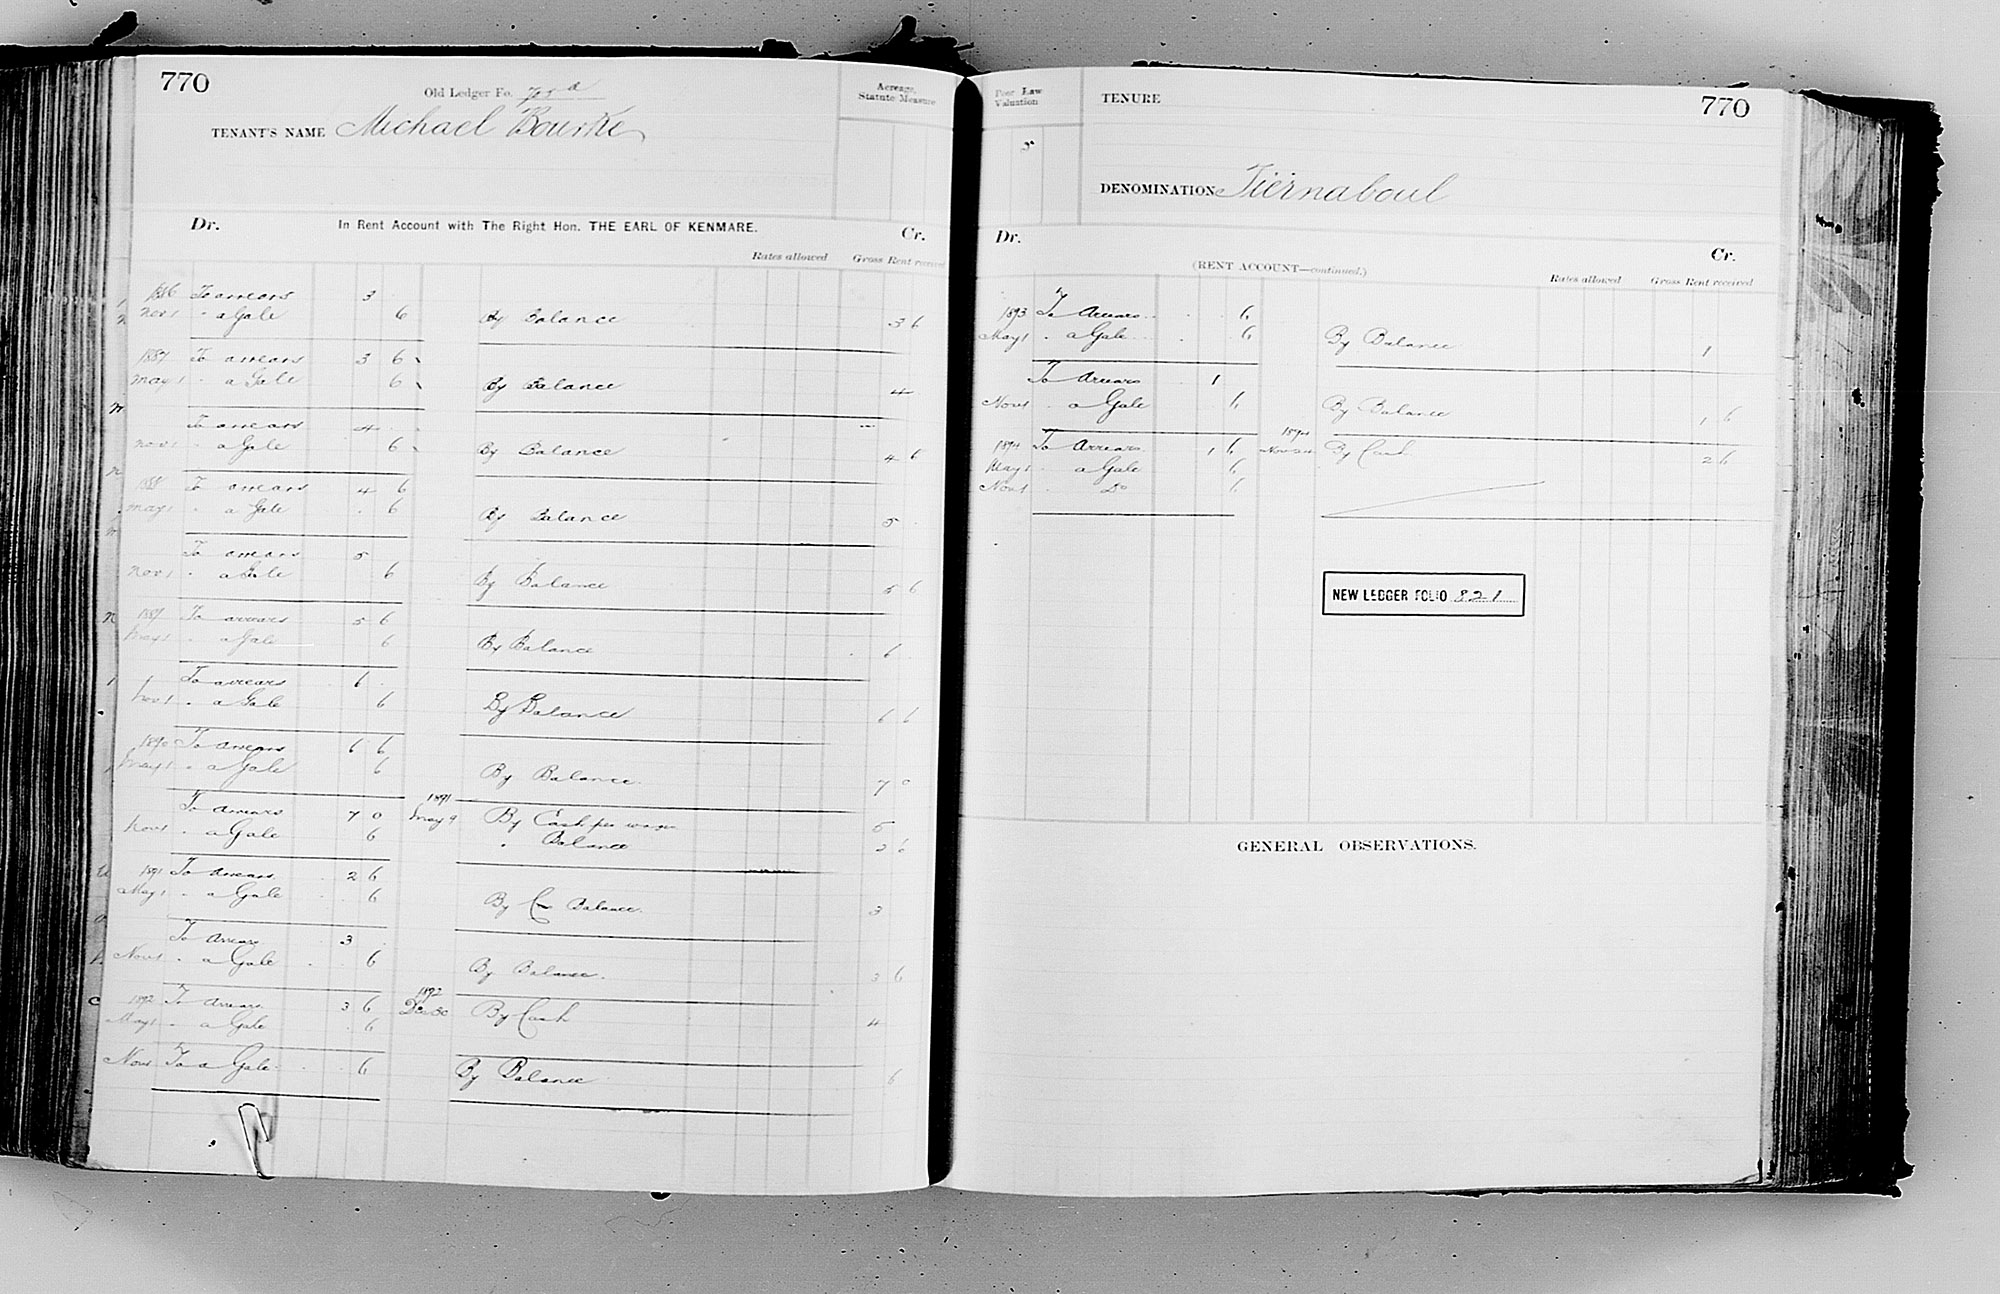 770
Old Ledger Fo.
Acreage, Statute Measure
TENANT'S NAME Michael Bourke
Dr. In Rent Account with The Right Hon. THE EARL OF KENMARE. Cr.
Rates allowed Gross Rent received
1886 To arrears 3
Nov 1 " a Gale 6 By Balance 3 6
1887 To arrears 3 6
May 1 " a Gale 6 By Balance 4
To arrears 4
Nov 1 " a Gale 6 By Balance 4 6
1888 To arrears 4 6
May 1 " a Gale 6 By Balance 5
To arrears 5
Nov 1 " a Gale 6 By Balance 5 6
1889 To arrears 5 6
May 1 " a Gale 6 By Balance 6
To arrears 6
Nov 1 " a Gale 6 By Balance 6 6
1890 To arrears 6 6
May 1 " a Gale 6 By Balance 7 0
To arrears 7 0 1891 May 9 By Cash per wages 5
Nov 1 " a Gale 6 " Balance 2 6
1891 To arrears 2 6
May 1 " a Gale 6 By Balance 3
To Arrears 3
Nov 1 " a Gale 6 By Balance 3 6
1892 To arrears 3 6 1892 Dec 30 By Cash 4
May 1 " a Gale 6
Nov 1 To a Gale 6 By Balance 6
Poor Law Valuation
TENURE
770
5
DENOMINATION Tiernaboul
Dr. Cr.
(RENT ACCOUNT—continued.)
Rates allowed Gross Rent received
1893 To Arrears 6
May 1 " a Gale 6 By Balance 1
To Arrears 1
Nov 1 " a Gale 6 By Balance 1 6
1894 To Arrears 1 6 1894 Nov By Cash 2 6
May 1 a Gale 6
Nov 1 " Do 6
NEW LEDGER FOLIO 821
GENERAL OBSERVATIONS.